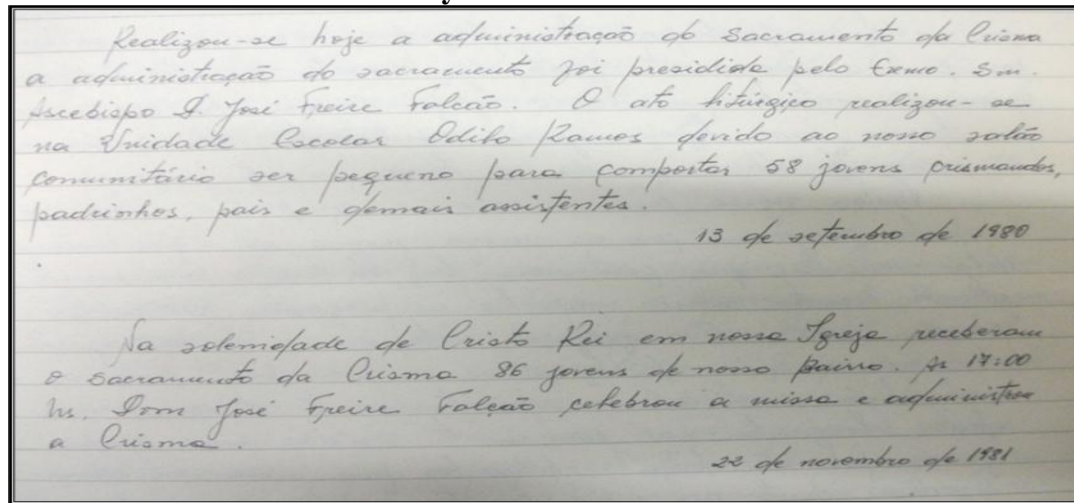 Realizou-se hoje a administração do Sacramento da Crisma
a administração do sacramento foi presidida pelo Exmo. Snr.
Arcebispo D. José Freire Falcão. O ato litúrgico realizou-se
na Unidade Escolar Odilo Ramos devido ao nosso salão
comunitário ser pequeno para comportar 58 jovens crismandos,
padrinhos, pais e demais assistentes.
13 de setembro de 1980
Na solenidade de Cristo Rei em nossa Igreja receberam
o Sacramento da Crisma 86 jovens de nosso Bairro. As 17:00
hs. Dom José Freire Falcão celebrou a missa e administrou
a Crisma.
22 de novembro de 1981